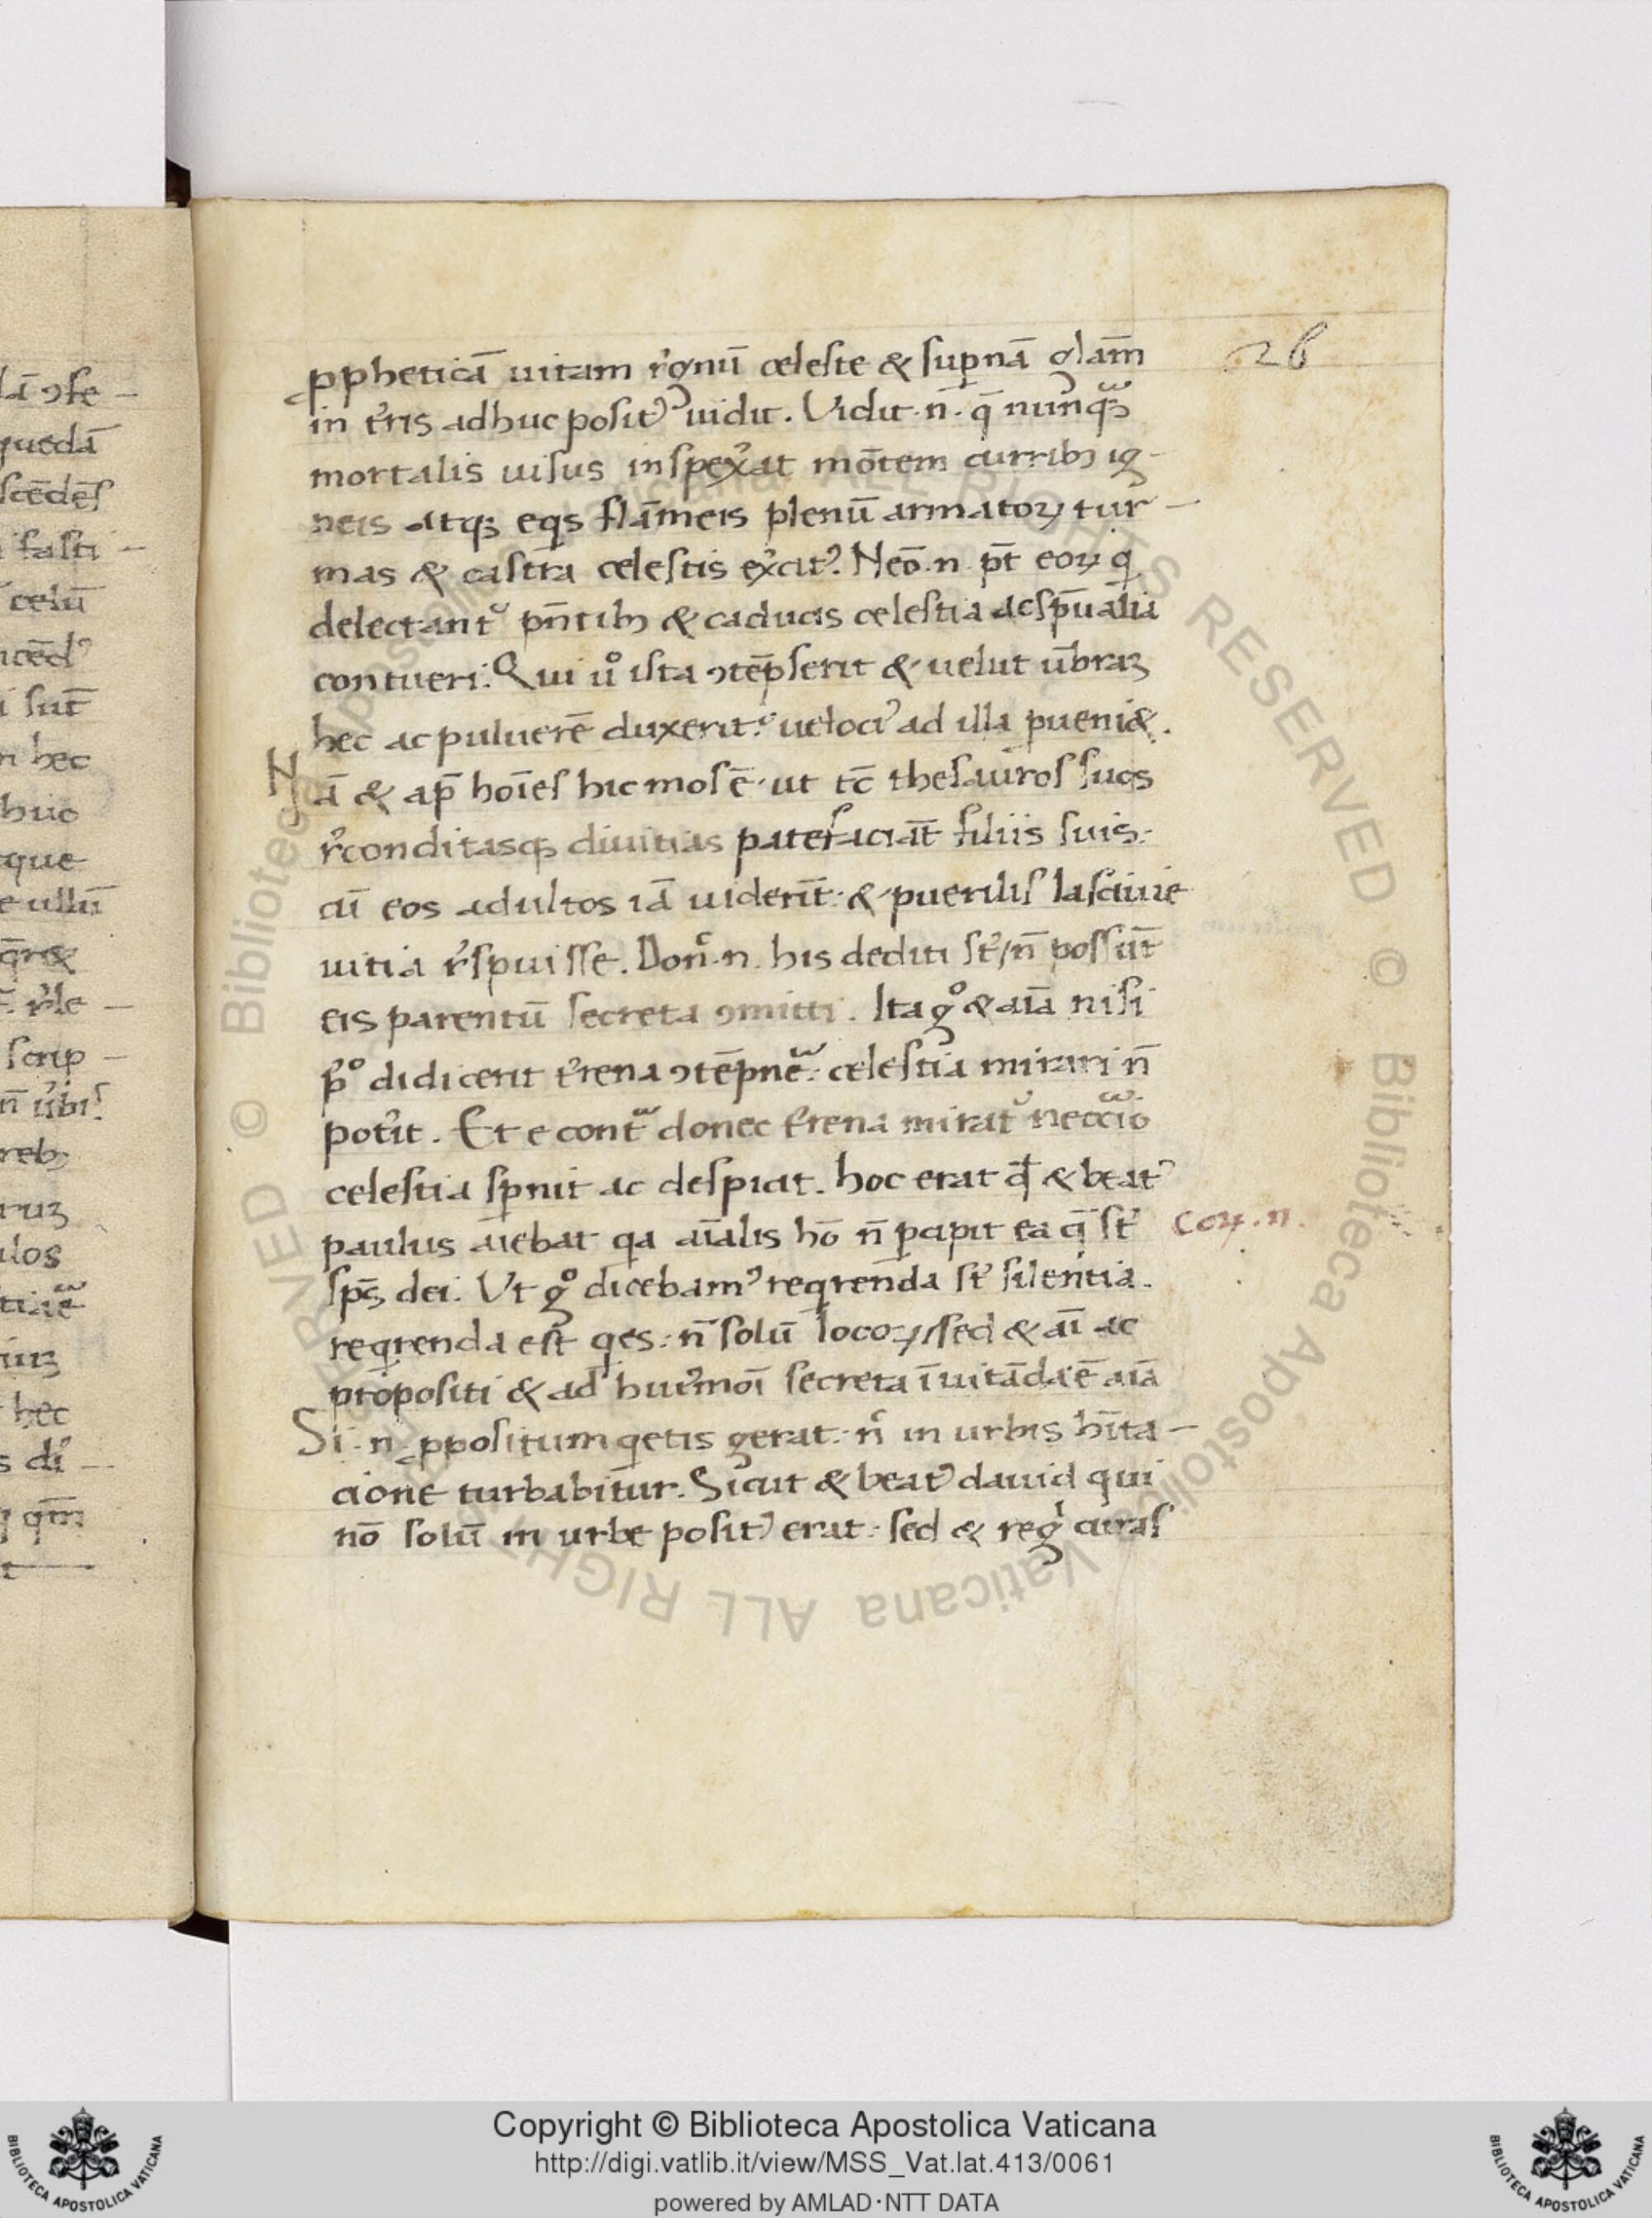 26
ꝓpheticā uitam r̉gnū celeste & sup̲nā gl̄am
in t̉ris adhuc positꝰ uidit. Vidit .n. q̄ nunq̃ꝫ
mortalis uisus inspex̉at mōtem curribꝫ ig-
neis atqꝫ eqs flāmeis plenū armatoꝝ tur̉-
mas & castra celestis ex̉citꝰ. Neō .n. pt̄ eoꝝ q
delectant᷑ pn̄tibꝫ & caducis celestia ac sp̄ualia
contueri. Qui ů ista ꝯtēpserit & uelut ūbraꝫ
hec ac puluerē duxerit: uelociꝰ ad illa ꝑueni&.
Nā & ap̄ hoīes hic mos ē. ut tc̄ thesauros suos
r̉conditasqꝫ diuitias patefaciāt filiis suis:
cū eos adultos iā uiderīt: & puerilis lasciuie
uitia r̉spuisse. Don̉ .n. his dediti st̉/ n̄ possūt
eis parentū secreta ꝯmitti. Ita g̊ & aīa nisi
p̊ didicerit t̉rena ꝯtēpnẽ: celestia mirari n̄
pot̉it. Et e contᷓ donec t̉rena mirat᷑ necc̃io
celestia sꝑnit ac despicit. hoc erat qđ & beatꝰ
paulus aiebat qa aīalis hō n̄ ꝑcipit ea q̄ st̉
Coꝝ .II.
sp̄c dei. Vt g̊ dicebamꝰ reqrenda st̉ silentia.
reqrenda est qes: n̄ solū locoꝝ/ sed & aī ac
propositi & ad hui᷒moī secreta īuitāda ē aīa
Si .n. ꝓpositum qetis gerat: n̄ in urbis hīta-
cione turbabitur. Sicut & beatꝰ dauid qui
nō solū in urbe positꝰ erat: sed & reg̉ curas
Copyright © Biblioteca Apostolica Vaticana
http://digi.vatlib.it/view/MSS_Vat.lat.413/0061
powered by AMLAD·NTT DATA